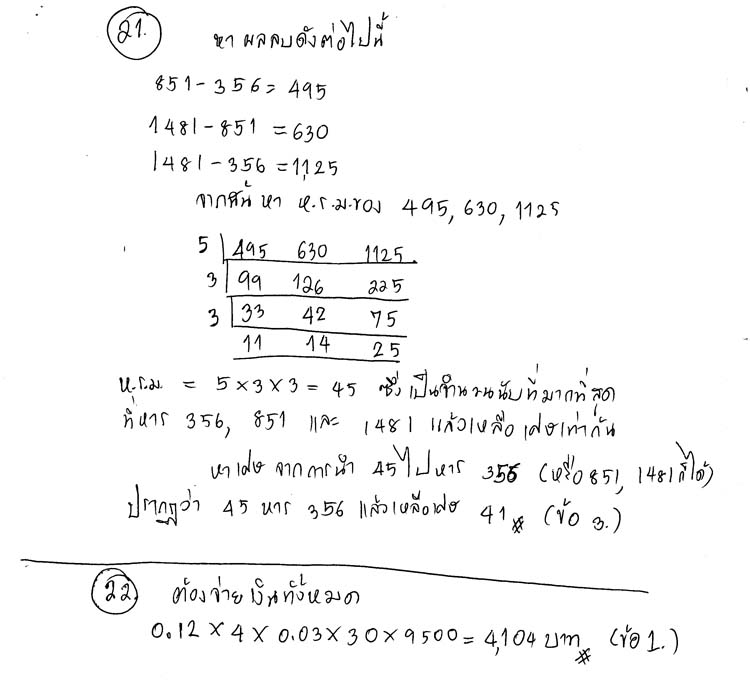 21.
หาผลลบดังต่อไปนี้
851 - 356 = 495
1481 - 851 = 630
1481 - 356 = 1,125
จากนั้น หา ห.ร.ม. ของ 495, 630, 1125
5 495 630 1125
3 99 126 225
3 33 42 75
11 14 25
ห.ร.ม. = 5 × 3 × 3 = 45 ซึ่งเป็นจำนวนนับที่มากที่สุด
ที่หาร 356, 851 และ 1481 แล้วเหลือเศษเท่ากัน
หาเศษ จากการนำ 45 ไปหาร 356 (หรือ 851, 1481 ก็ได้)
ปรากฏว่า 45 หาร 356 แล้วเหลือเศษ 41 # (ข้อ 3.)
22.
ต้องจ่ายเงินทั้งหมด
0.12 × 4 × 0.03 × 30 × 9500 = 4,104 บาท # (ข้อ 1.)